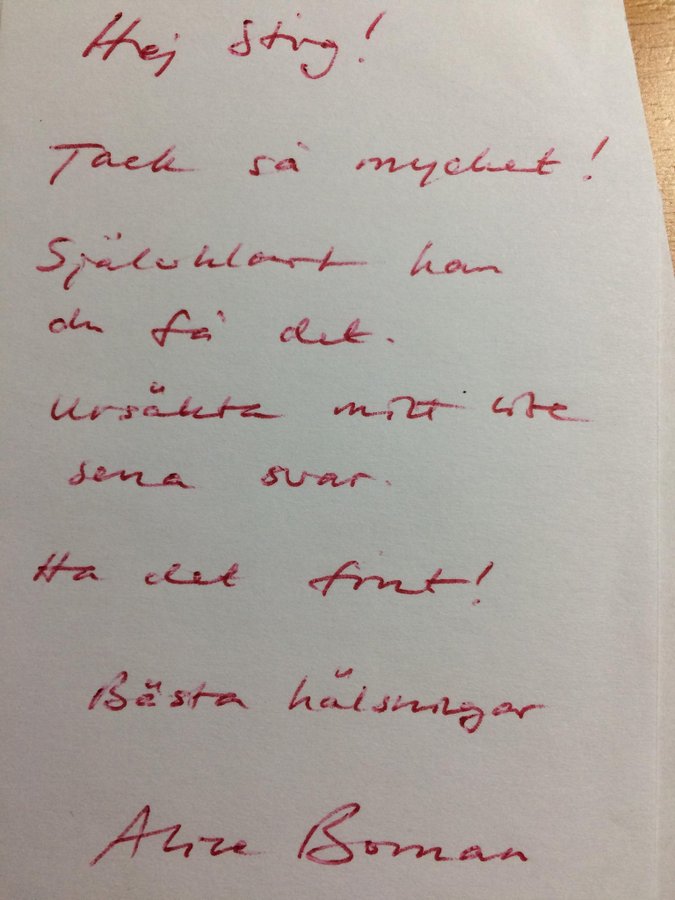 Hej Stig!
Tack så mycket!
Självklart kan
du få det.
Ursäkta mitt lite
sena svar.
Ha det fint!
Bästa hälsningar
Alice Boman